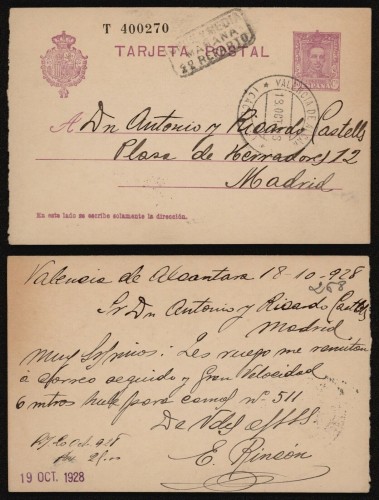 T 400270
MAÑANA
2º REPARTO
TARJETA POSTAL
VALENCIA DE ALCAN
ESPAÑA
A Dn Antonio y Ricardo Castells
Plasa de Herradores 12
Madrid
En este lado se escribe solamente la dirección.
Valencia de Alcantara 18-10-928
268
Sr Dn Antonio y Ricardo Castells
Madrid
Muy Sres mios: Les ruego me remitan
á correo seguido y Gran Velocidad
6 mtros hule para camal nº 511
De Vdes
E. Rincón
19 OCT. 1928